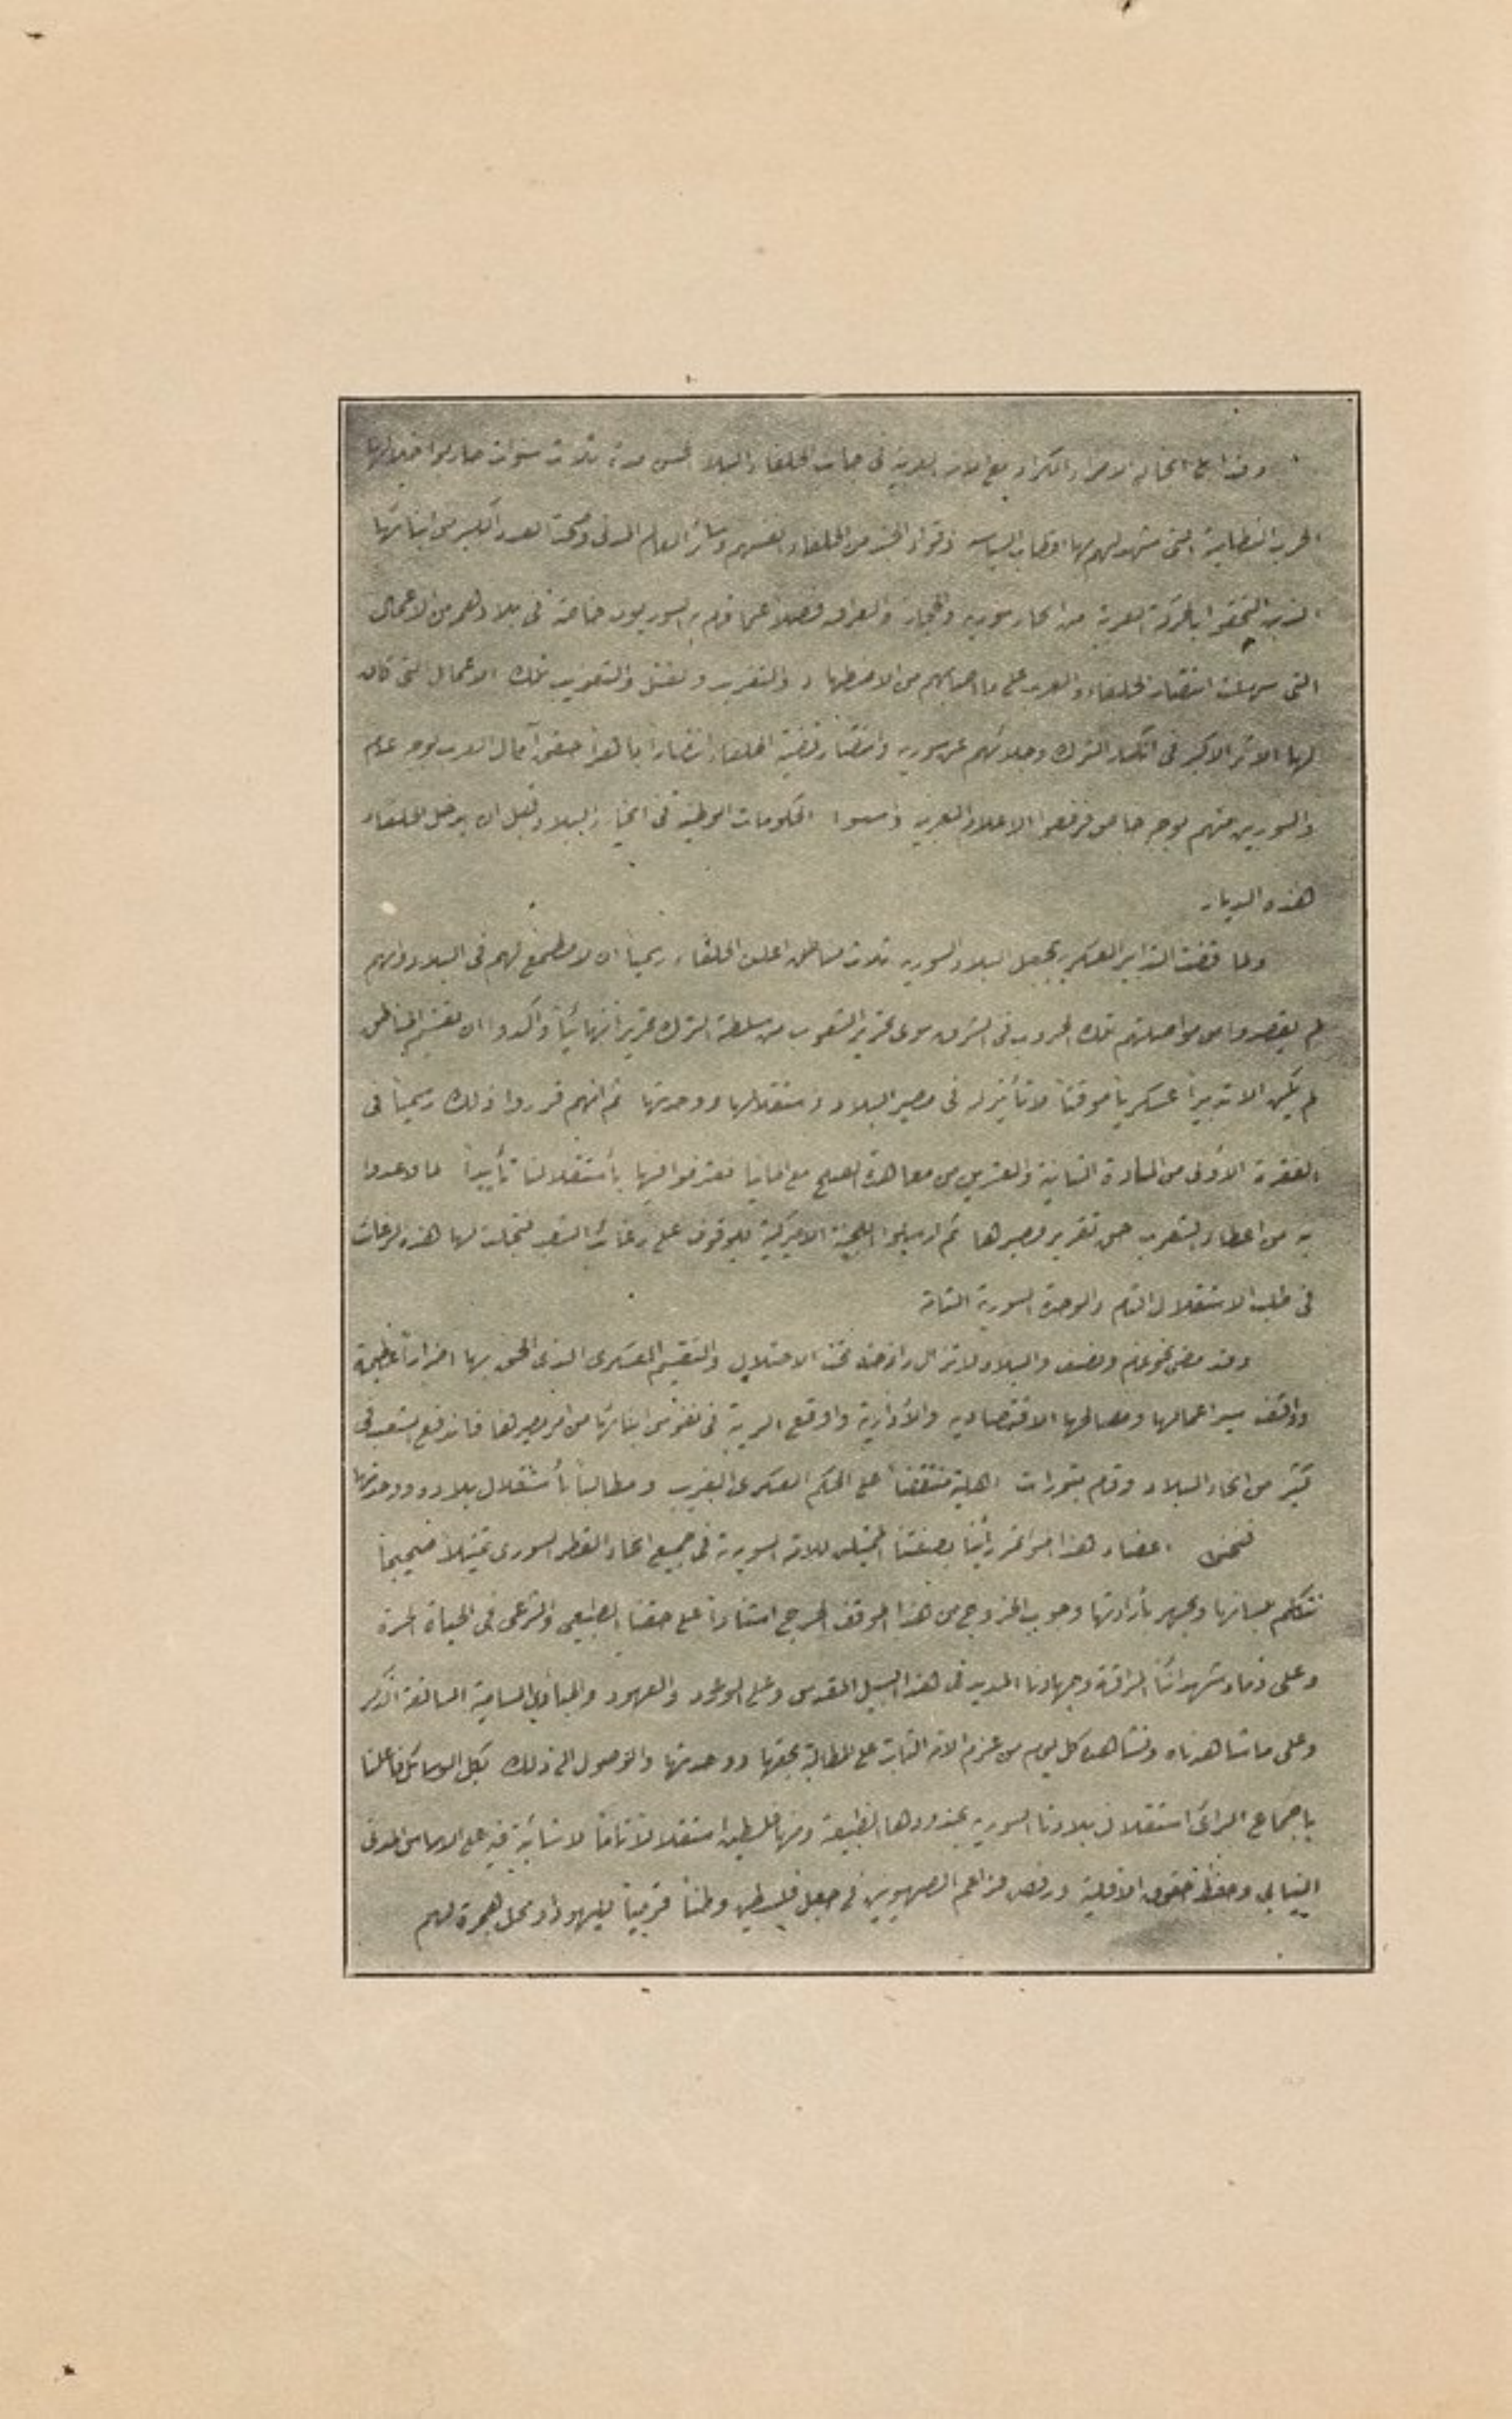 وقد أبلى أنجاله الامراء الكرام مع الامة العربية في جانب الحلفاء البلاء الحسن مدة ثلاث سنوات حاربوا خلالها
الحرب النظامية التي شهد لهم بها اقطاب السياسة وقواد الجند من الحلفاء انفسهم وسائر العالم المدني وضحت العدد الكبير من ابنائها
الذين التحقوا بالحركة العربية من انحاء سورية والحجاز والعراق فضلاً عما قام به السوريون خاصة في بلادهم من الاعمال
التي سهلت انتصار الحلفاء والعرب على ما اصابهم من الاضطهاد والتعذيب والقتل والتغريب تلك الاعمال التي كان
لها الاثر الاكبر في انكسار الترك وجلائهم عن سورية وانتصار قضية الحلفاء انتصاراً باهراً حقق آمال العرب بوجه عام
والسوريين منهم بوجه خاص فرفعوا الاعلام العربية واسسوا الحكومات الوطنية في انحاء البلاد قبل ان يدخل الحلفاء
هذه الديار
ولما قضت التدابير العسكرية بجعل البلاد السورية ثلاث مناطق اعلن الحلفاء رسمياً ان لا مطمع لهم في البلاد وانهم
لم يقصدوا من مواصلتهم تلك الحروب في الشرق سوى تحرير الشعوب من سلطة الترك تحريراً نهائياً وأكدوا ان تقسيم المناطق
لم يكن الا تدبيراً عسكرياً موقتاً لا تأثير له في مصير البلاد واستقلالها ووحدتها ثم انهم قرروا ذلك رسمياً في
الفقرة الأولى من المادة الثانية والعشرين من معاهدة الصلح مع المانيا فعترفوا فيها بأستقلالنا تأييداً لما وعدوا
به من اعطاء الشعوب حق تقرير مصيرها ثم ارسلوا اللجنة الاميركية للوقوف على رغائب الشعب فتجلت لها هذه الرغبات
في طلب الاستقلال التام والوحدة السورية التامة
وقد مضى نحو عام ونصف والبلاد لا تزال رازحة تحت الاحتلال والتقسيم العسكري الذي الحق بها اضراراً عظيمة
واوقف سير اعمالها ومصالحها الاقتصادية والأدارية واوقع الريبة في نفوس ابنائها من امر مصيرها فاندفع الشعب في
كثير من انحاء البلاد وقام بثورات اهلية منتقضاً على الحكم العسكري الغريب ومطالباً بأستقلال بلاده ووحدتها
فنحن اعضاء هذا المؤتمر رأينا بصفتنا الممثلين للامة السورية في جميع انحاء القطر السوري تمثيلاً صحيحاً
نتكلم بلسانها ونجهر بأرادتها وجوب الخروج من هذا الموقف الحرج استناداً على حقنا الطبيعي والشرعي في الحياة الحرة
وعلى دماء شهدائنا المراقة وجهادنا المديد في هذا السبيل المقدس وعلى الوعود والعهود والمبادئ السامية السالفة الذكر
وعلى ما شاهدناه ونشاهده كل يوم من عزم الامة الثابت على المطالبة بحقها ووحدتها والوصول الى ذلك بكل الوسائل فأعلنا
باجماع الرأي استقلال بلادنا السورية بحدودها الطبيعية ومنها فلسطين استقلالاً تاماً لا شائبة فيه على الاساس المدني
النيابي وحفظ حقوق الاقلية ورفض مزاعم الصهيونيين في جعل فلسطين وطناً قومياً لليهود او محل هجرة لهم